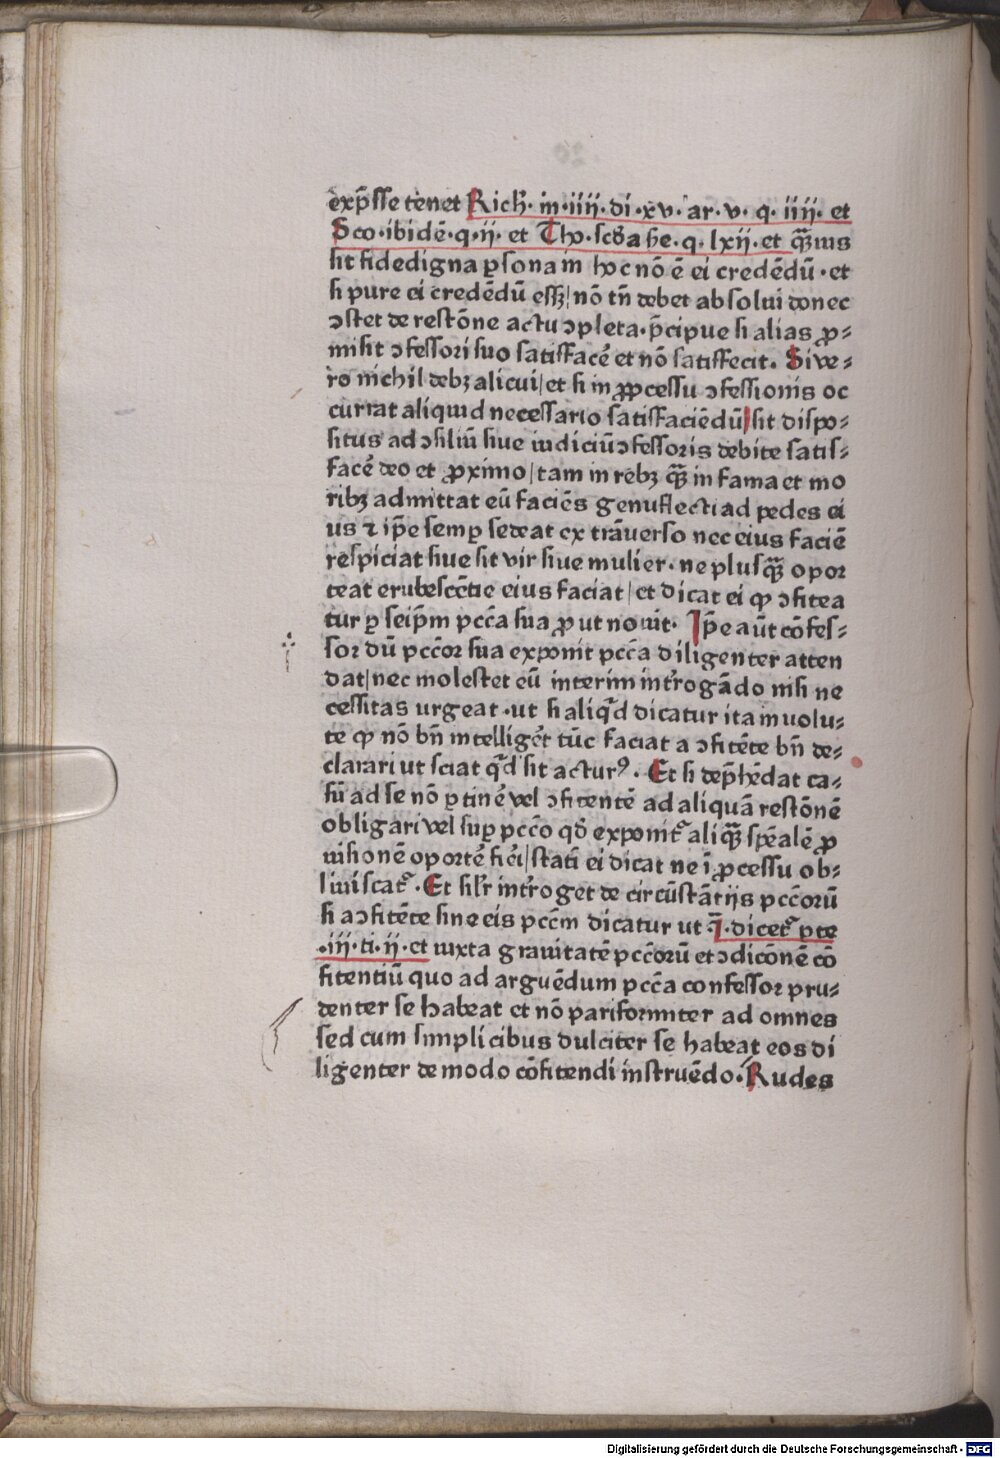 exp̄sse tenet Rich̄· in·iiij·di·xv·ar·v·q·iiij·et
Sco·ibidē·q·ij·et Tho·scd̄a sc̄e·q·lxij·et qᷓuis
sit fidedigna ꝑsona in hoc nō ē ei credēdū·et
si pure ei credēdū essꝫ|nō tn̄ debet absolui donec
ↄstet de restōne actu ↄpleta·p̄cipue si alias ꝓ⸗
misit ↄfessori suo satisfacē et nō satisfecit. Si ve⸗
ro nichil debꝫ alicui|et si in ꝓcessu ↄfessionis oc
currat aliquid necessario satisfaciēdū|sit dispo⸗
situs ad ↄsiliū siue iudiciū ↄfessoris debite satis⸗
facē deo et ꝓximo|tam in rebꝫ qᷓ in fama et mo
ribꝫ admittat eū faciēs genuflecti ad pedes ei
us ⁊ ip̄e semꝑ sedeat ex trāuerso nec eius faciē
respiciat siue sit vir siue mulier·ne plusqᷓ opor
teat erubescētie eius faciat|et dicat ei ꝙ ↄfitea
tur ꝑ seip̄m pccā sua ꝓut nouit· Ip̄e aūt cōfes⸗
sor dū pccōr sua exponit pccā diligenter atten
dat|nec molestet eū interim intrōgādo nisi ne
cessitas urgeat·ut si aliqͥd dicatur ita inuolu⸗
te ꝙ nō bn̄ intelligēt tūc faciat a ↄfitēte bn̄ de⸗
clarari ut sciat qͥd sit acturꝰ. Et si dep̄hēdat ca⸗
sū ad se nō ꝑtinē vel ↄfitentē ad aliquā restōnē
obligari vel suꝑ pccō qd̄ exponit᷑ aliqᷓ sp̄ealē ꝓ
uisionē oportē fiēi|statī ei dicat ne ī ꝓcessu ob⸗
liuiscat᷑·Et silr̄ intrōget de circūstātijs pccōrū
si a ↄfitēte sine eis pccm̄ dicatur ut ·ī·dicet᷑ ꝑte
·iij·ti·ij·et iuxta grauitatē pccōrū et ↄdicōnē cō
fitentiū quo ad arguēdum pccā confessor pru⸗
denter se habeat et nō pariformiter ad omnes
sed cum simplicibus dulciter se habeat eos di
ligenter de modo cōfitendi instruēdo·Rudes
Digitalisierung gefördert durch die Deutsche Forschungsgemeinschaft · DFG